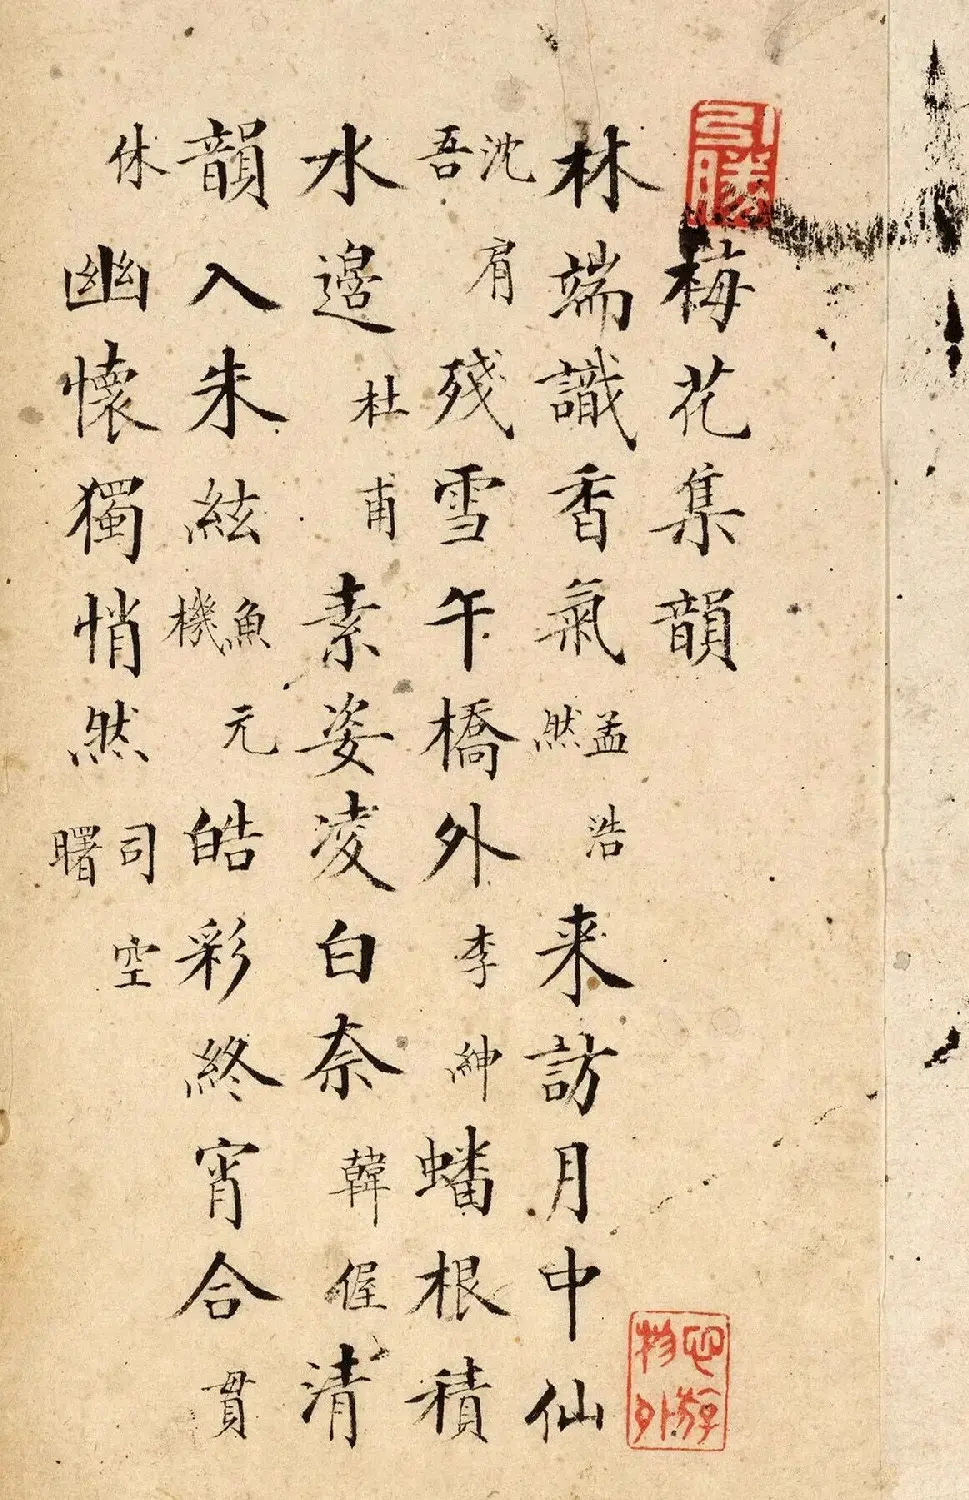 引勝
梅花集韻
心游物外
林端識香氣孟浩然来訪月中仙
沈肩吾殘雪午橋外李紳蟠根積
水邊杜甫素姿凌白奈韓偓清
韻入朱絃魚元機皓彩終宵合貫
休幽懷獨悄然司空曙